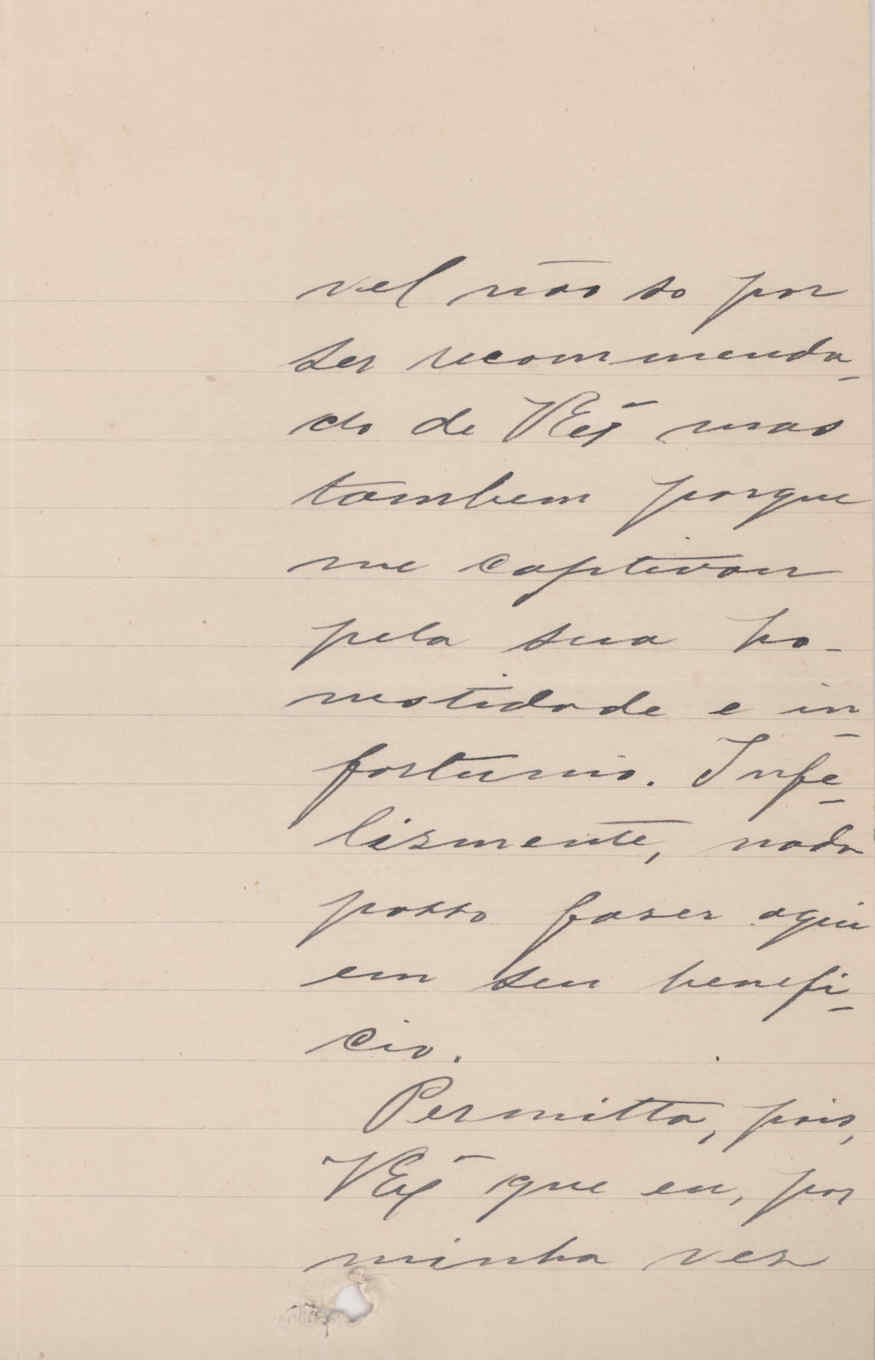 vel não so por
ser recommenda-
do de VEx̃ mas
tambem porque
me captivou
pela sua ho-
nestidade e in-
fortunio. Infe-
lismente, nada
posso faser aqui
em seu benefi-
cio.
Permitta, pois,
VEx̃ que eu, por
minha vez